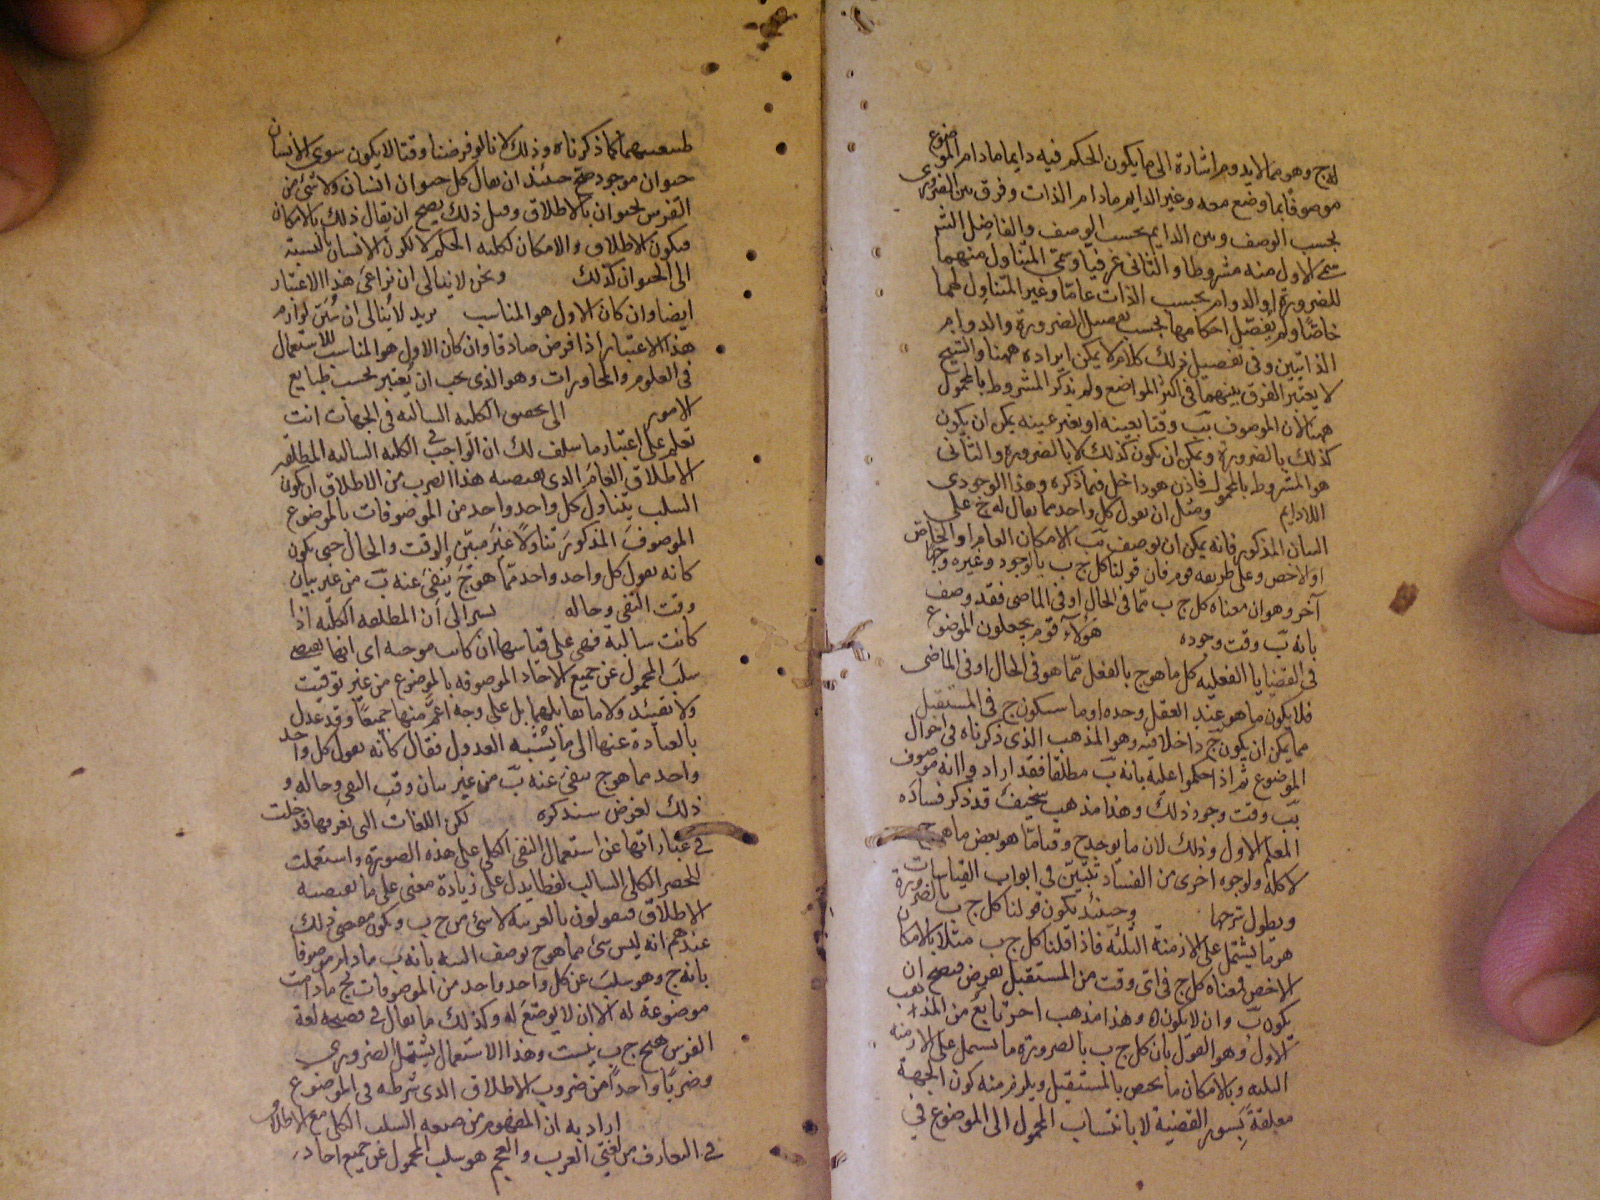 له ج وهو مما لا يدوم اشارة الى ما يكون الحكم فيه دايما مادام الموضوع
موصوفا بما وضع معه وغير الدايم مادام الذات وفرق بين الضروري
بحسب الوصف وبين الدايم بحسب الوصف والفاضل الشم
سمى الاول منه مشروطا والثانى عرفيا وسمى المتناول منهما
للضرورة او الدوام بحسب الذات عاما وغير المتناول لهما
خاصا ولم يفصل احكامها بحسب تفصيل الضرورة والدوام
الذاتيين وفى تفصيل ذلك كلام لا يمكن ايراده ههنا والشيخ
لا يعتبر الفرق بينهما فى اكثر المواضع ولم يذكر المشروط بالمحمول
ههنا لان الموصوف بب وقتا بعينه او بغير عينه يمكن ان يكون
كذلك بالضرورة ويمكن ان يكون كذلك لا بالضرورة والثانى
هو المشروط بالمحمول فاذن هو داخل فيما ذكره وهذا الوجودى
اللادايم ومثل ان نقول كل واحد مما يقال له ج على
البيان المذكور فانه يمكن ان يوصف بب الامكان العام او الخاص
او الاخص وعلى طريقه قوم فان قولنا كل ج ب بالوجود وغيره وجها
آخر وهو ان معناه كل ج ب مما فى الحال او فى الماضى فقد وصف
بانه ب وقت وجوده هؤلاء قوم يجعلون الموضوع
فى القضايا الفعليه كل ما هو ج بالفعل مما هو فى الحال او فى الماضى
فلا يكون ما هو عند العقل وحده او ما سيكون ج فى المستقبل
مما يمكن ان يكون ج داخلا فيه وهو المذهب الذى ذكرناه فى احوال
الموضوع ثم اذا حكموا عليه بانه ب مطلقا فقد ارادوا انه موصوف
بب وقت وجود ذلك وهذا مذهب سخيف قد ذكر فساده
المعلم الاول وذلك لان ما يوجد ج وقتا ما هو بعض ما هو ج
لا كله ولوجوه اخرى من الفساد تتبين فى ابواب القياسات
ويطول شرحها وحينئذ يكون قولنا كل ج ب بالضرورة
هو ما يشتمل على الازمنة الثلثة فاذا قلنا كل ج ب مثلا بالامكان
الاخص فمعناه كل ج فى اى وقت من المستقبل يفرض فيصح ان
يكون ب وان لا يكون وهذا مذهب اخر تابع من المذهب
الاول وهو القول بان كل ج ب بالضرورة ما يشمل على الازمنه
الثلثه وبالامكان ما يختص بالمستقبل ويلزم منه كون الجهة
معلقة بسور القضية لا بانتساب المحمول الى الموضوع فى
طبيعتيهما كما ذكرناه وذلك لانا لو فرضنا وقتا لا يكون سوى الانسان
حيوان موجود صح حينئذ ان يقال كل حيوان انسان ولا شئ من
الفرس بحيوان بالاطلاق وقبل ذلك يصح ان يقال ذلك بالامكان
فيكون الاطلاق والامكان لكلية الحكم لا لكون الانسان بالنسبة
الى الحيوان كذلك ونحن لا نبالى ان نراعى هذا الاعتبار
ايضا وان كان الاول هو المناسب يريد لا نبالى ان نبين لوازم
هذا الاعتبار اذا فرض صادقا وان كان الاول هو المناسب للاستعمال
فى العلوم والمحاورات وهو الذى يجب ان يعتبر بحسب طبايع
الامور الى تحقيق الكليه السالبه فى الجهات انت
تعلم على اعتبار ما سلف لك ان الواجب فى الكليه السالبه المطلقه
الاطلاق العام الذى يقتضيه هذا الضرب من الاطلاق ان يكون
السلب يتناول كل واحد واحد من الموصوفات بالموضوع
الموصوف المذكور تناولا غير مبين الوقت والحال حتى يكون
كانه يقول كل واحد واحد مما هو ج ينفى عنه ب من غير بيان
وقت النفى وحاله يشير الى ان المطلقه الكليه اذا
كانت سالبة فهى على قياسها ان كانت موجبه اى انها يقتضى
سلب المحمول عن جميع الاحاد الموصوفه بالموضوع من غير توقيت
ولا تقييد ولا ما يقابلهما بل على وجه اعم منها جميعا وقد عدل
بالعبارة عنها الى ما يشبه العدول فقال كانه يقول كل واحد
واحد مما هو ج ينفى عنه ب من غير بيان وقت النفى وحاله و
ذلك لغرض سنذكره لكن اللغات التى نعرفها قد خلت
فى عباراتها عن استعمال النفى الكلى على هذه الصورة واستعملت
للحصر الكلى السالب لفظا يدل على زيادة معنى على ما يقتضيه
الاطلاق فيقولون بالعربية لا شئ من ج ب ويكون مقتضى ذلك
عندهم انه ليس شئ مما هو ج يوصف البته بانه ب مادام موصوفا
بانه ج وهو سلب عن كل واحد واحد من الموصوفات بج مادامت
موضوعة له الا ان لا يوضع له وكذلك ما يقال فى فصيح لغة
الفرس هيچ ج ب نيست وهذا الاستعمال يشتمل الضرورى
وضربا واحدا من ضروب الاطلاق الذى شرطه فى الموضوع
اراد به ان المفهوم من صيغه السلب الكلى مع الاطلاق
فى التعارف من لغتى العرب والعجم هو سلب المحمول عن جميع احاد